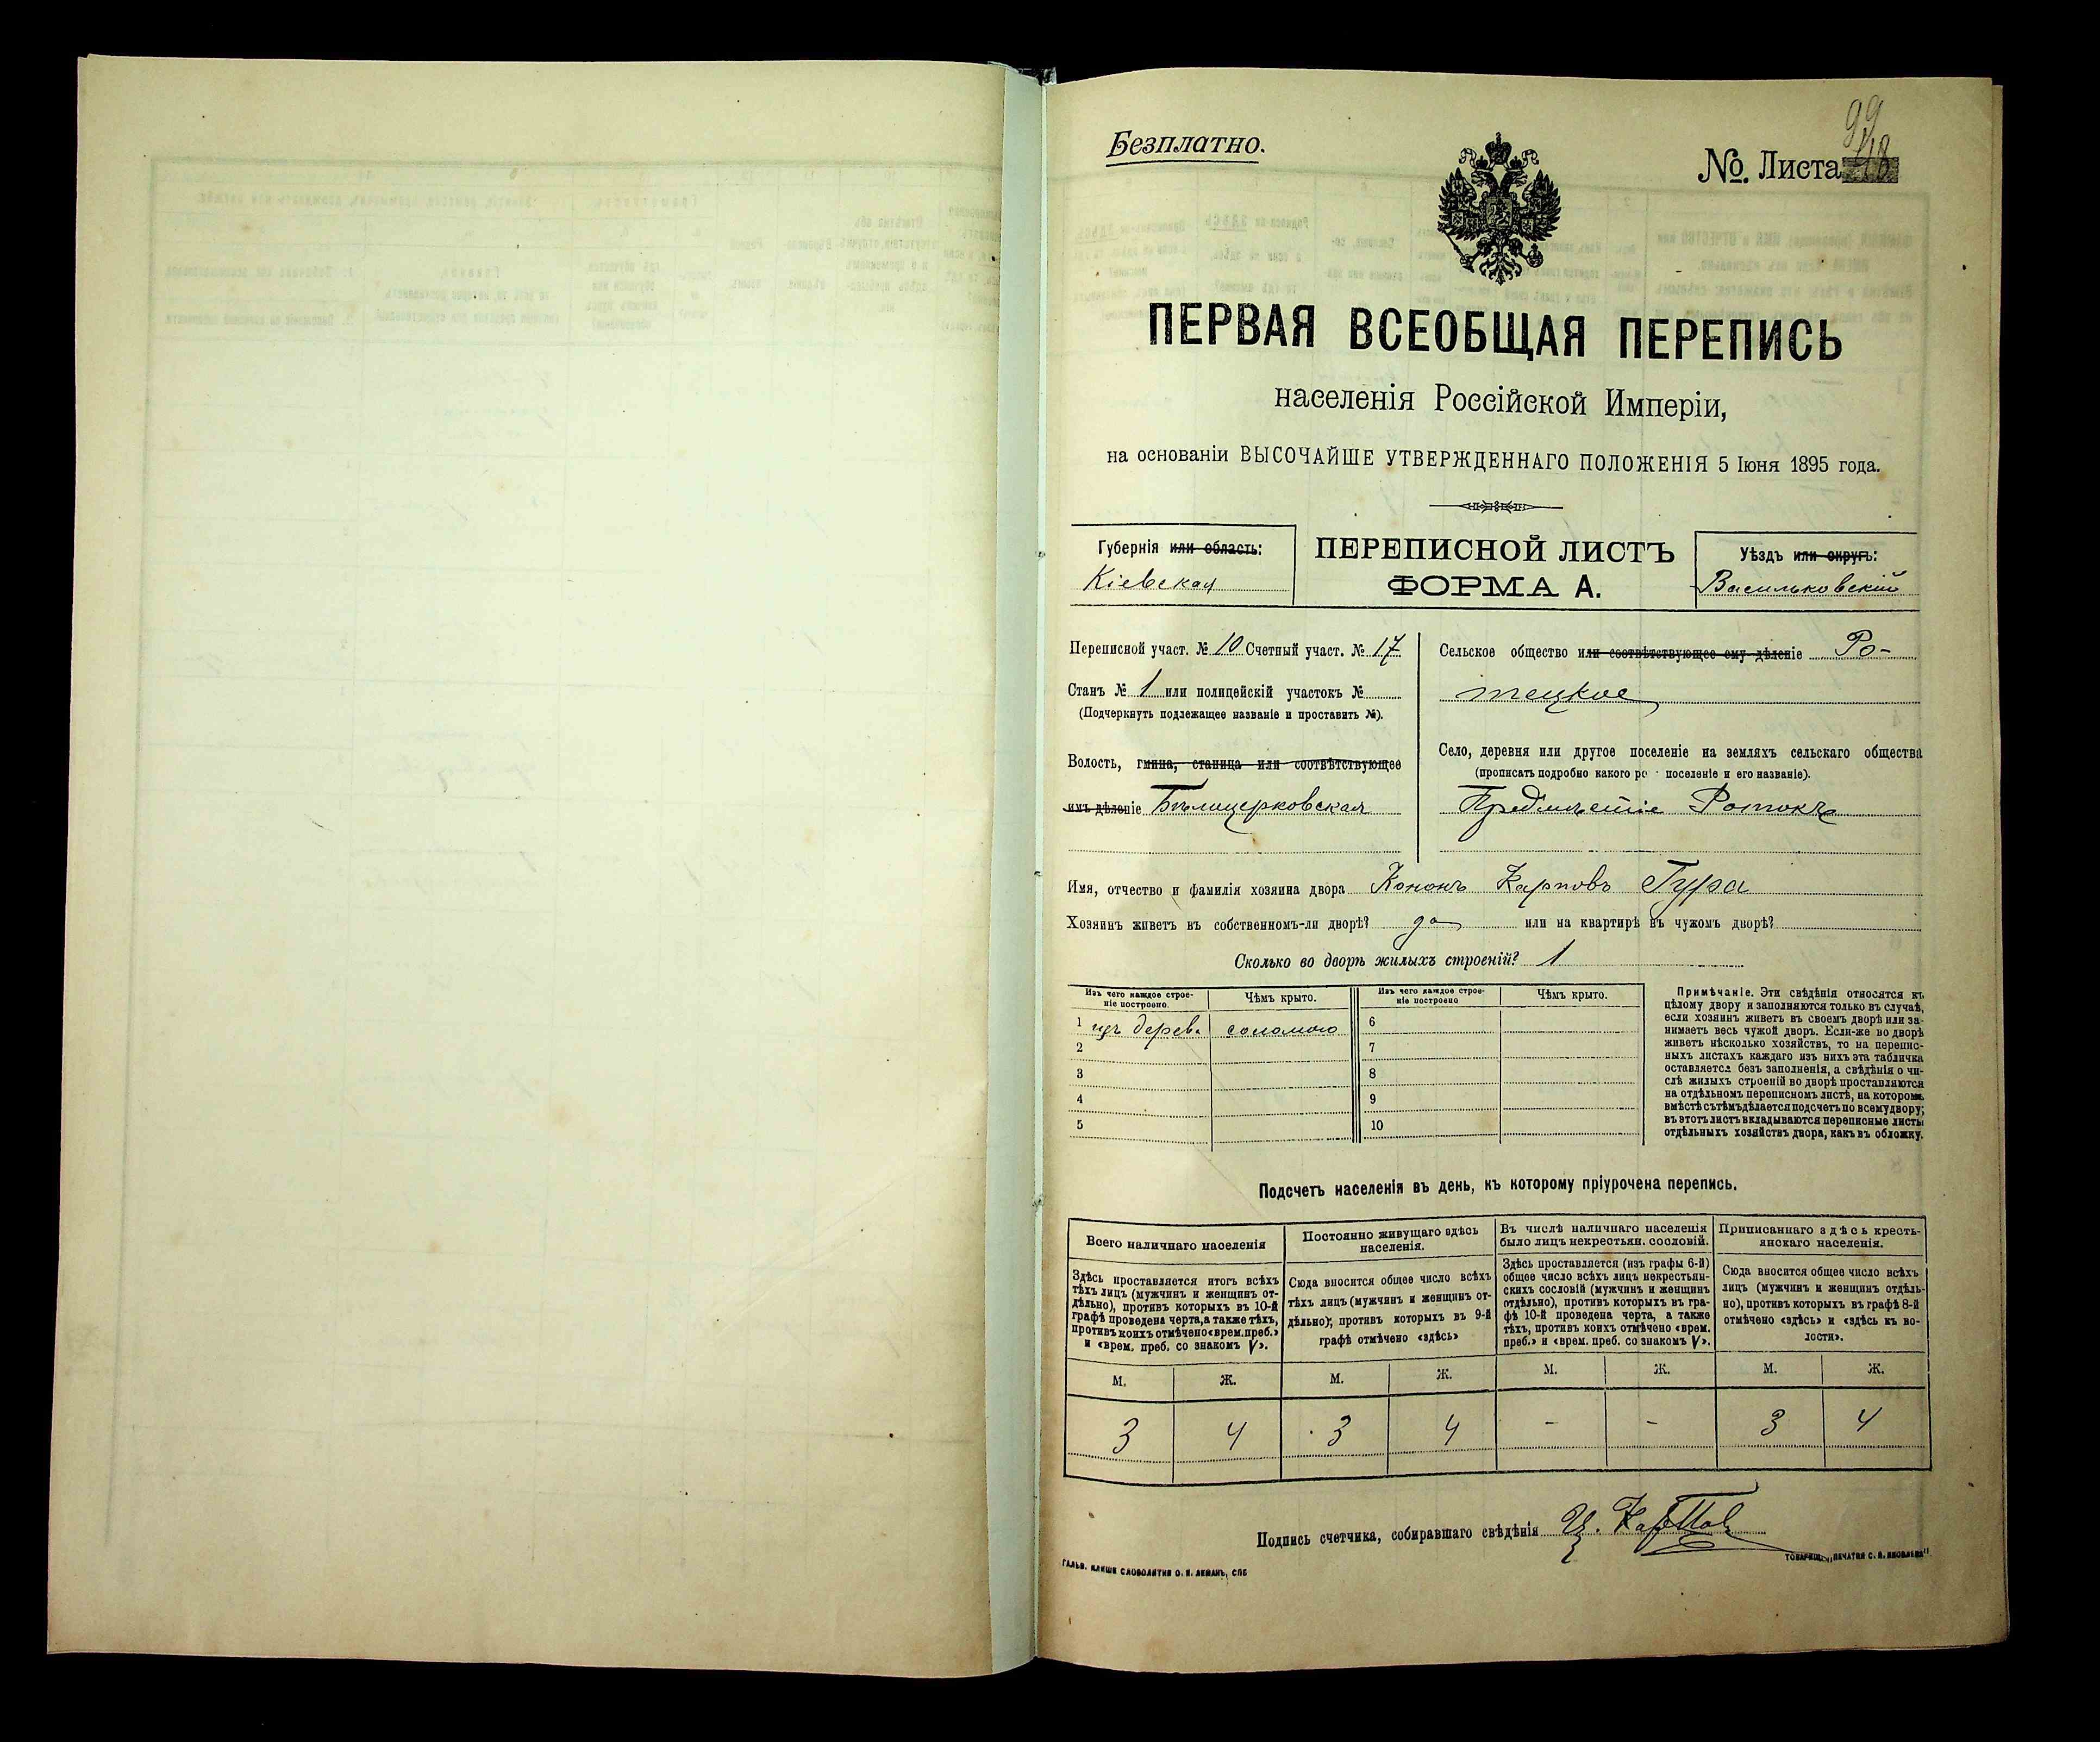 99
Безплатно.
№. Листа 48
ПЕРВАЯ ВСЕОБЩАЯ ПЕРЕПИСЬ
населенія Россійской Имперіи,
на основаніи ВЫСОЧАЙШЕ УТВЕРЖДЕННАГО ПОЛОЖЕНІЯ 5 Іюня 1895 года.
Губернія или область:
Кіевская
ПЕРЕПИСНОЙ ЛИСТЪ
ФОРМА А.
Уѣздъ или округъ:
Васильковскій
Переписной участ. № 10 Счетный участ. № 17
Станъ № 1 или полицейскій участокъ №
(Подчеркнуть подлежащее названіе и проставить №).
Волость, гмина, станица или соотвѣтствующее
имъ дѣленіе Бѣлоцерковская
Сельское общество или соотвѣтствующее ему дѣленіе Ро-
тецкое
Село, деревня или другое поселеніе на земляхъ сельскаго общества
(прописать подробно какого ро поселеніе и его названіе).
Предмѣстіе Ротокъ
Имя, отчество и фамилія хозяина двора Кононъ Карповъ Гура
Хозяинъ живетъ въ собственномъ-ли дворѣ? да или на квартирѣ въ чужомъ дворѣ?
Сколько во дворѣ жилыхъ строеній? 1
Изъ чего каждое строе-
ніе построено.
Чѣмъ крыто.
Изъ чего каждое строе-
ніе построено
Чѣмъ крыто.
1 изъ дерев. соломою 6
2 7
3 8
4 9
5 10
Примѣчаніе. Эти свѣдѣнія относятся къ
цѣлому двору и заполняются только въ случаѣ,
если хозяинъ живетъ въ своемъ дворѣ или за-
нимаетъ весь чужой дворъ. Если-же во дворѣ
живетъ нѣсколько хозяйствъ, то на перепис-
ныхъ листахъ каждаго изъ нихъ эта табличка
оставляется безъ заполненія, а свѣдѣнія о чи-
слѣ жилыхъ строеній во дворѣ проставляются
на отдѣльномъ переписномъ листѣ, на которомъ
вмѣстѣ съ тѣмъ дѣлается подсчетъ по всему двору;
въ этотъ листъ вкладываются переписные листы
отдѣльныхъ хозяйствъ двора, какъ въ обложку.
Подсчетъ населенія въ день, къ которому пріурочена перепись.
Всего наличнаго населенія
Здѣсь проставляется итогъ всѣхъ
тѣхъ лицъ (мужчинъ и женщинъ от-
дѣльно), противъ которыхъ въ 10-й
графѣ проведена черта, а также тѣхъ,
противъ коихъ отмѣчено «врем. преб.»
и «врем. преб. со знакомъ V».
Постоянно живущаго здѣсь
населенія.
Сюда вносится общее число всѣхъ
тѣхъ лицъ (мужчинъ и женщинъ от-
дѣльно), противъ которыхъ въ 9-й
графѣ отмѣчено «здѣсь»
Въ числѣ наличнаго населенія
было лицъ некрестьян. сословій.
Здѣсь проставляется (изъ графы 6-й)
общее число всѣхъ лицъ некрестьян-
скихъ сословій (мужчинъ и женщинъ
отдѣльно), противъ которыхъ въ гра-
фѣ 10-й проведена черта, а также
тѣхъ, противъ коихъ отмѣчено «врем.
преб.» и «врем. преб. со знакомъ V».
Приписаннаго здѣсь кресть-
янскаго населенія.
Сюда вносится общее число всѣхъ
лицъ (мужчинъ и женщинъ отдѣль-
но), противъ которыхъ въ графѣ 8-й
отмѣчено «здѣсь» и «здѣсь въ во-
лости».
М. Ж. М. Ж. М. Ж. М. Ж.
3 4 3 4 - - 3 4
Подпись счетчика, собиравшаго свѣдѣнія
ГАЛЬВ. КЛИШЕ СЛОВОЛИТНИ О. И. ЛЕМАНЪ, СПБ
ТОВАРИЩ. „ПЕЧАТНЯ С. П. ЯКОВЛЕВА"